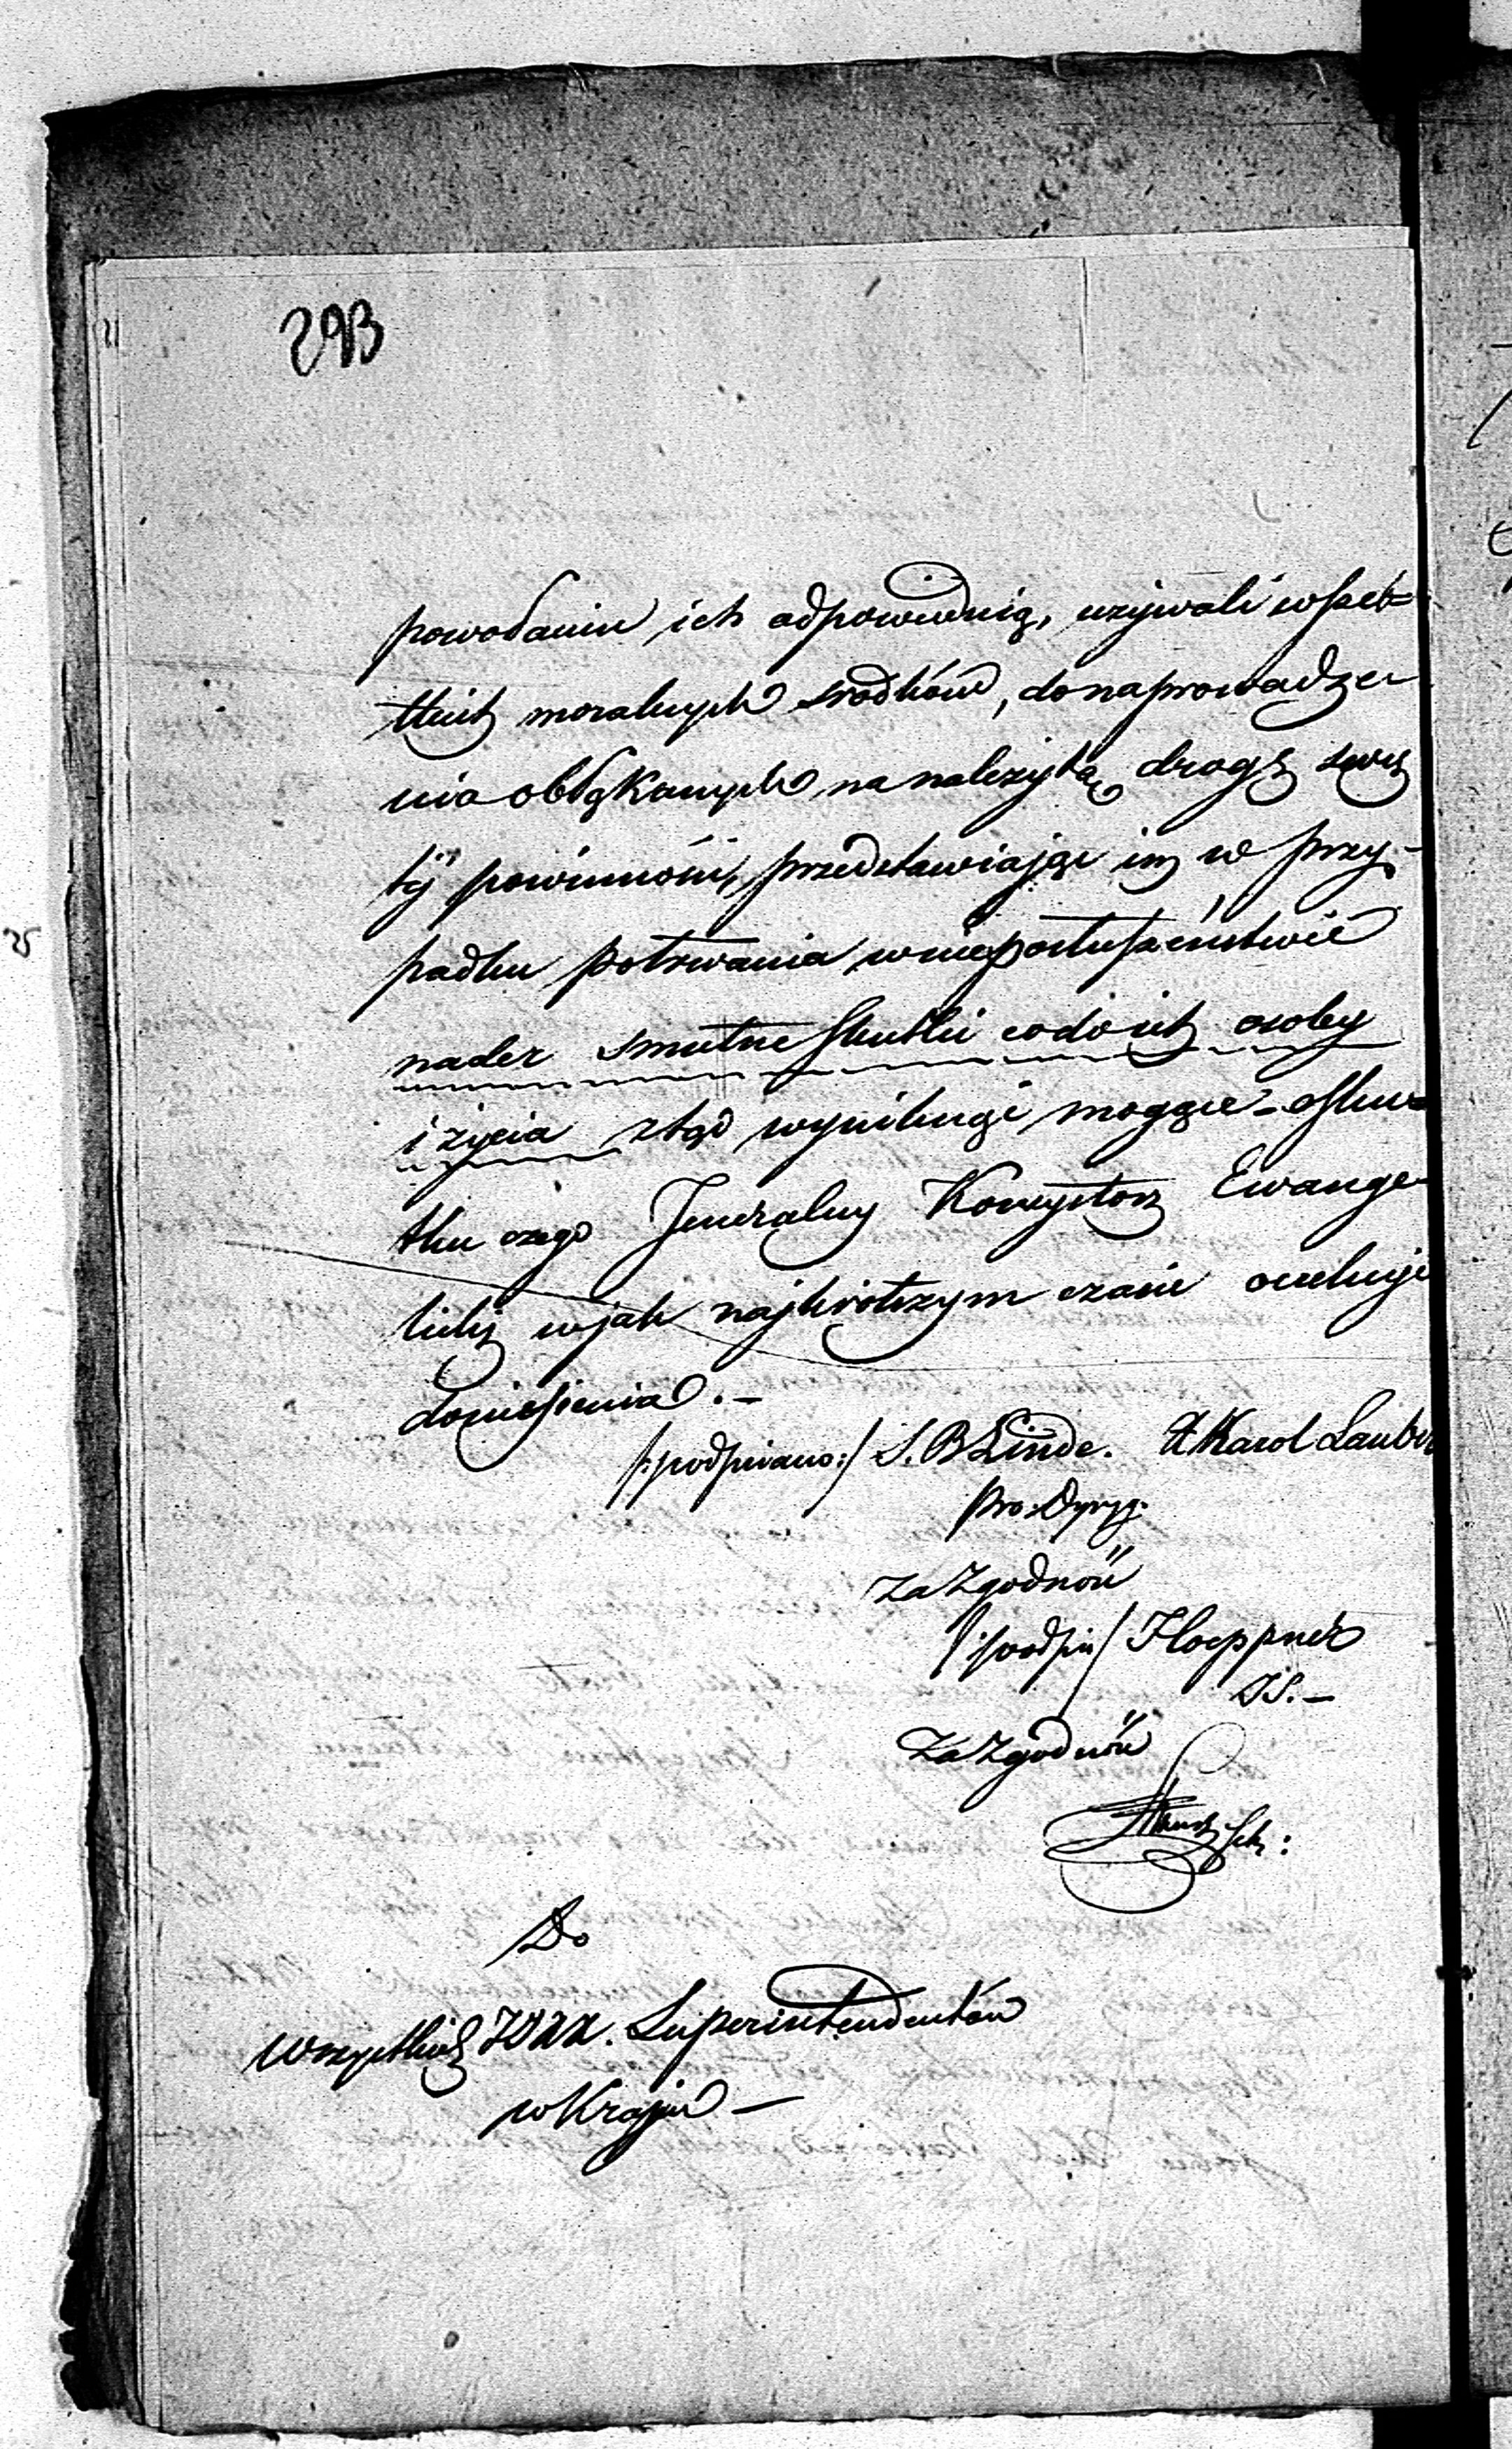 293
powołaniu ich odpowiednią, używali wszel=
kich moralnych srodków, do naprowadze-
nia obłąkanych na należytą drogę swey
tÿ powinności, przedstawiając im w przy-
padku potrwania w nieposłuszeństwie
nader smutne skutki co do ich osoby
i życia ztąd wyniknąć mogące - o sku=
tku czego Jeneralny Konsystorz Ewange-
licki w jak najkrótszym czasie oczekuje
doniesienia. -
/:podpisano:/ S. B Linde. Karol Lauber
pro. Dyryg.
Za Zgodność
/:podpis/ Hoeppner
JS. -
Za Zgodność
Sek:
Do
Wszystkich JWXX. Superintendentów
w Kraju -